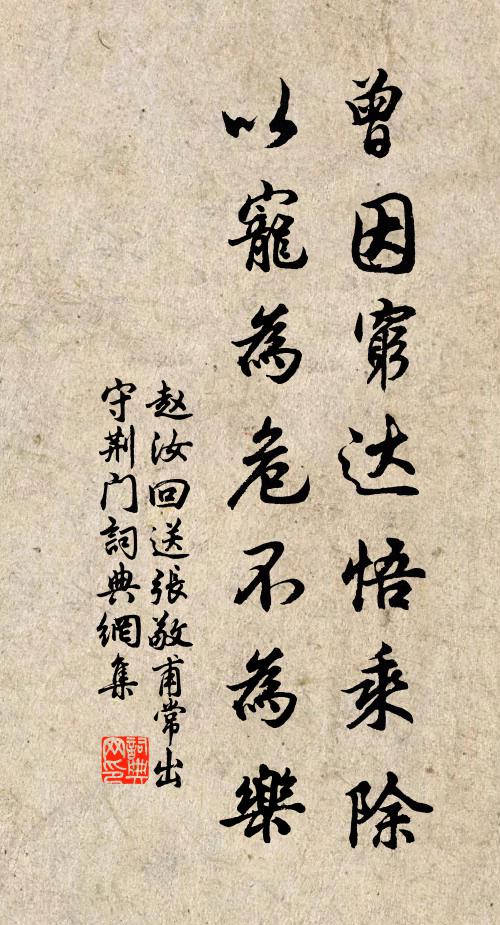 曾因窮达悟乘除
以寵為危不為樂
赵汝回送张敬甫常出
守荆门詞典網集
詞典
网印